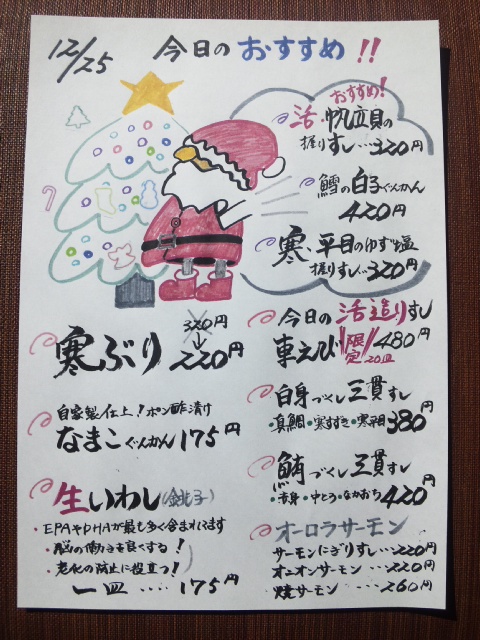 12/25 今日のおすすめ!!
おすすめ!
活・帆立貝の
握りすし…320円
鱈の白子ぐんかん
420円
寒平目のゆず塩
握りすし…320円
今日の活造りすし
車えび 限定20皿 480円
白身づくし三貫すし
・真鯛・寒すずき・寒平目 380円
鮪づくし三貫すし
・赤身・中とろ・なかおち 420円
オーロラサーモン
サーモンにぎりすし…220円
オニオンサーモン……220円
焼サーモン……260円
寒ぶり 320円→220円
自家製仕上!ポン酢漬け
なまこぐんかん 175円
生いわし(銚子)
・EPAやDHAが最も多く含まれてます
・脳の働きを良くする!
・老化の防止に役立つ!
一皿……175円